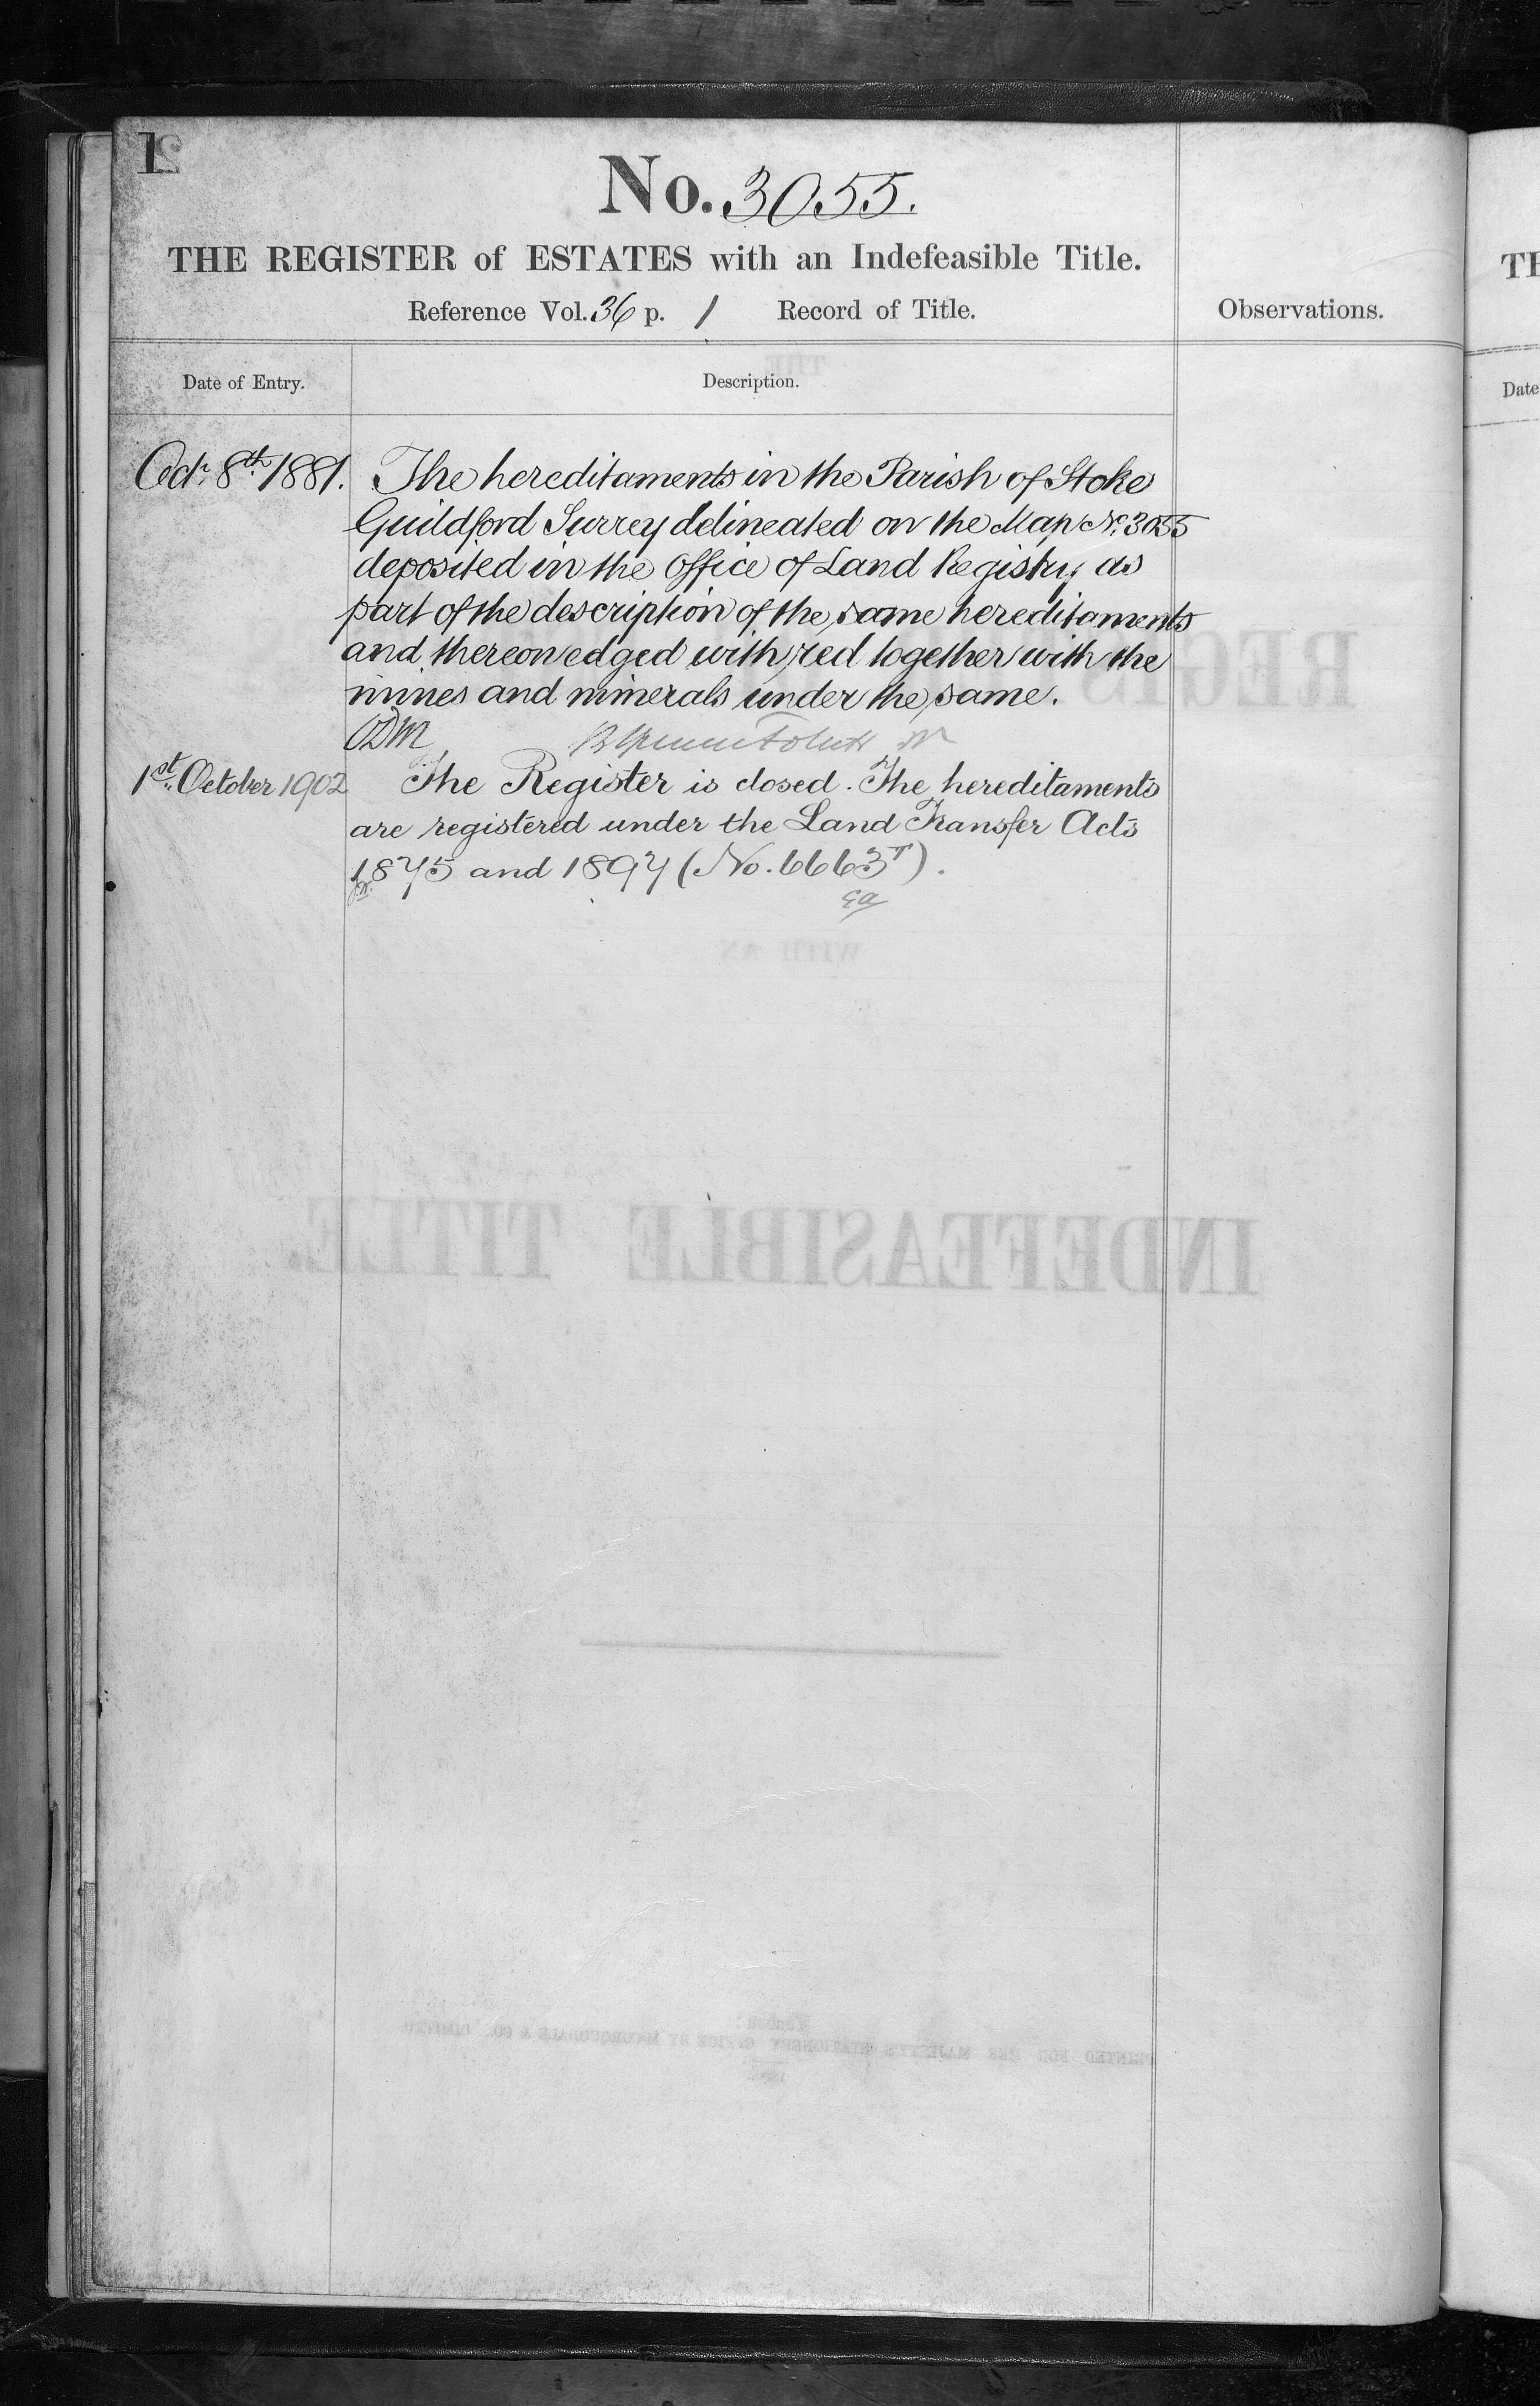 No. 3055.
THE REGISTER of ESTATES with an Indefeasible Title.
Reference Vol. 36 p. 1 Record of Title.
Observations.
Date of Entry.
Description.
Octr. 8th 1881. The hereditaments in the Parish of Stoke
Guildford Surrey delineated on the Map No. 3055
deposited in the Office of Land Registry as
part of the description of the same hereditaments
and thereon edged with red together with the
mines and minerals under the same.
1st October 1902 The Register is closed. The hereditaments
are registered under the Land Transfer Acts
1875 and 1897 (No. 6663T).